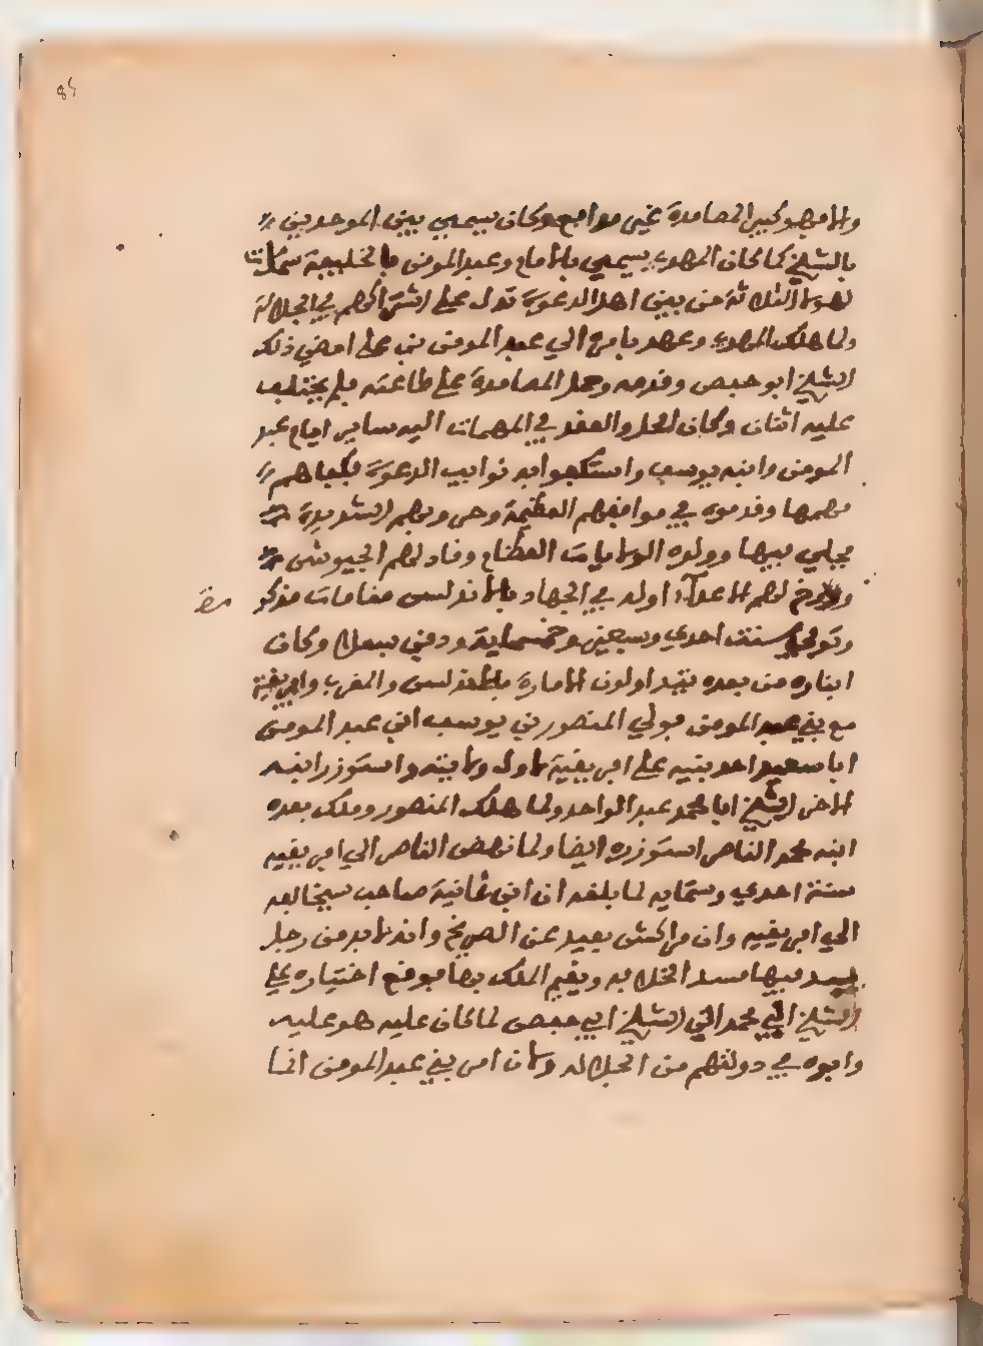 85
والا فهو كبير المصامدة غير مدافع وكان يسمى بين الموحدين
بالشيخ كما كان المهدي يسمى بالامام وعبد المومن بالخليفة سمات
لهولا الثلاثة من بين اهل الدعوة تدل على اشتراكهم في الجلالة
ولما هلك المهدي وعهد بامره الي عبد المومن امضي ذلك
الشيخ ابو حفص وقدمه وحمل المصامدة على طاعته فلم يختلف
عليه اثنان وكان الحل والعقد في المهمات اليه ساير ايام عبد
المومن وابنه يوسف واستكفوا به نوايب الدعوة فكفاهم
مهمها وقدموه في مواقفهم العظيمة وحروبهم الشديدة
فجلي فيها وولوه الولايات العظام وقاد لهم الجيوش
ودوخ لهم الاعدآ وله في الجهاد بالاندلس مقامات مذكو
رة
وتوفي سنة احدي وسبعين وخمسماية ودفن بسلا وكان
ابناوه من بعده يتداولون الامارة بالاندلس والمغرب وافريقية
مع بني عبد المومن فولي المنصور بن يوسف ابن عبد المومن
ابا سعيد احد بنيه على افريقية لاول ولايته واستوزر ابنه
الاخر الشيخ ابا محمد عبد الواحد ولما هلك المنصور وملك بعده
ابنه محمد الناصر استوزره ايضا ولما نهض الناصر الي افريقيه
سنة احدي وستمايه لما بلغه ان ابن غانية صاحب
الي افريقيه وان مراكش بعيد عن الصريخ وانه لابد من رجل
يسد فيها مسد الخلافه ويقيم الملك بها فوقع اختياره علي
الشيخ ابي محمد ابن الشيخ ابي حفص لما كان عليه هو عليه
وابوه في دولتهم من الجلاله وان امر بني عبد المومن انما